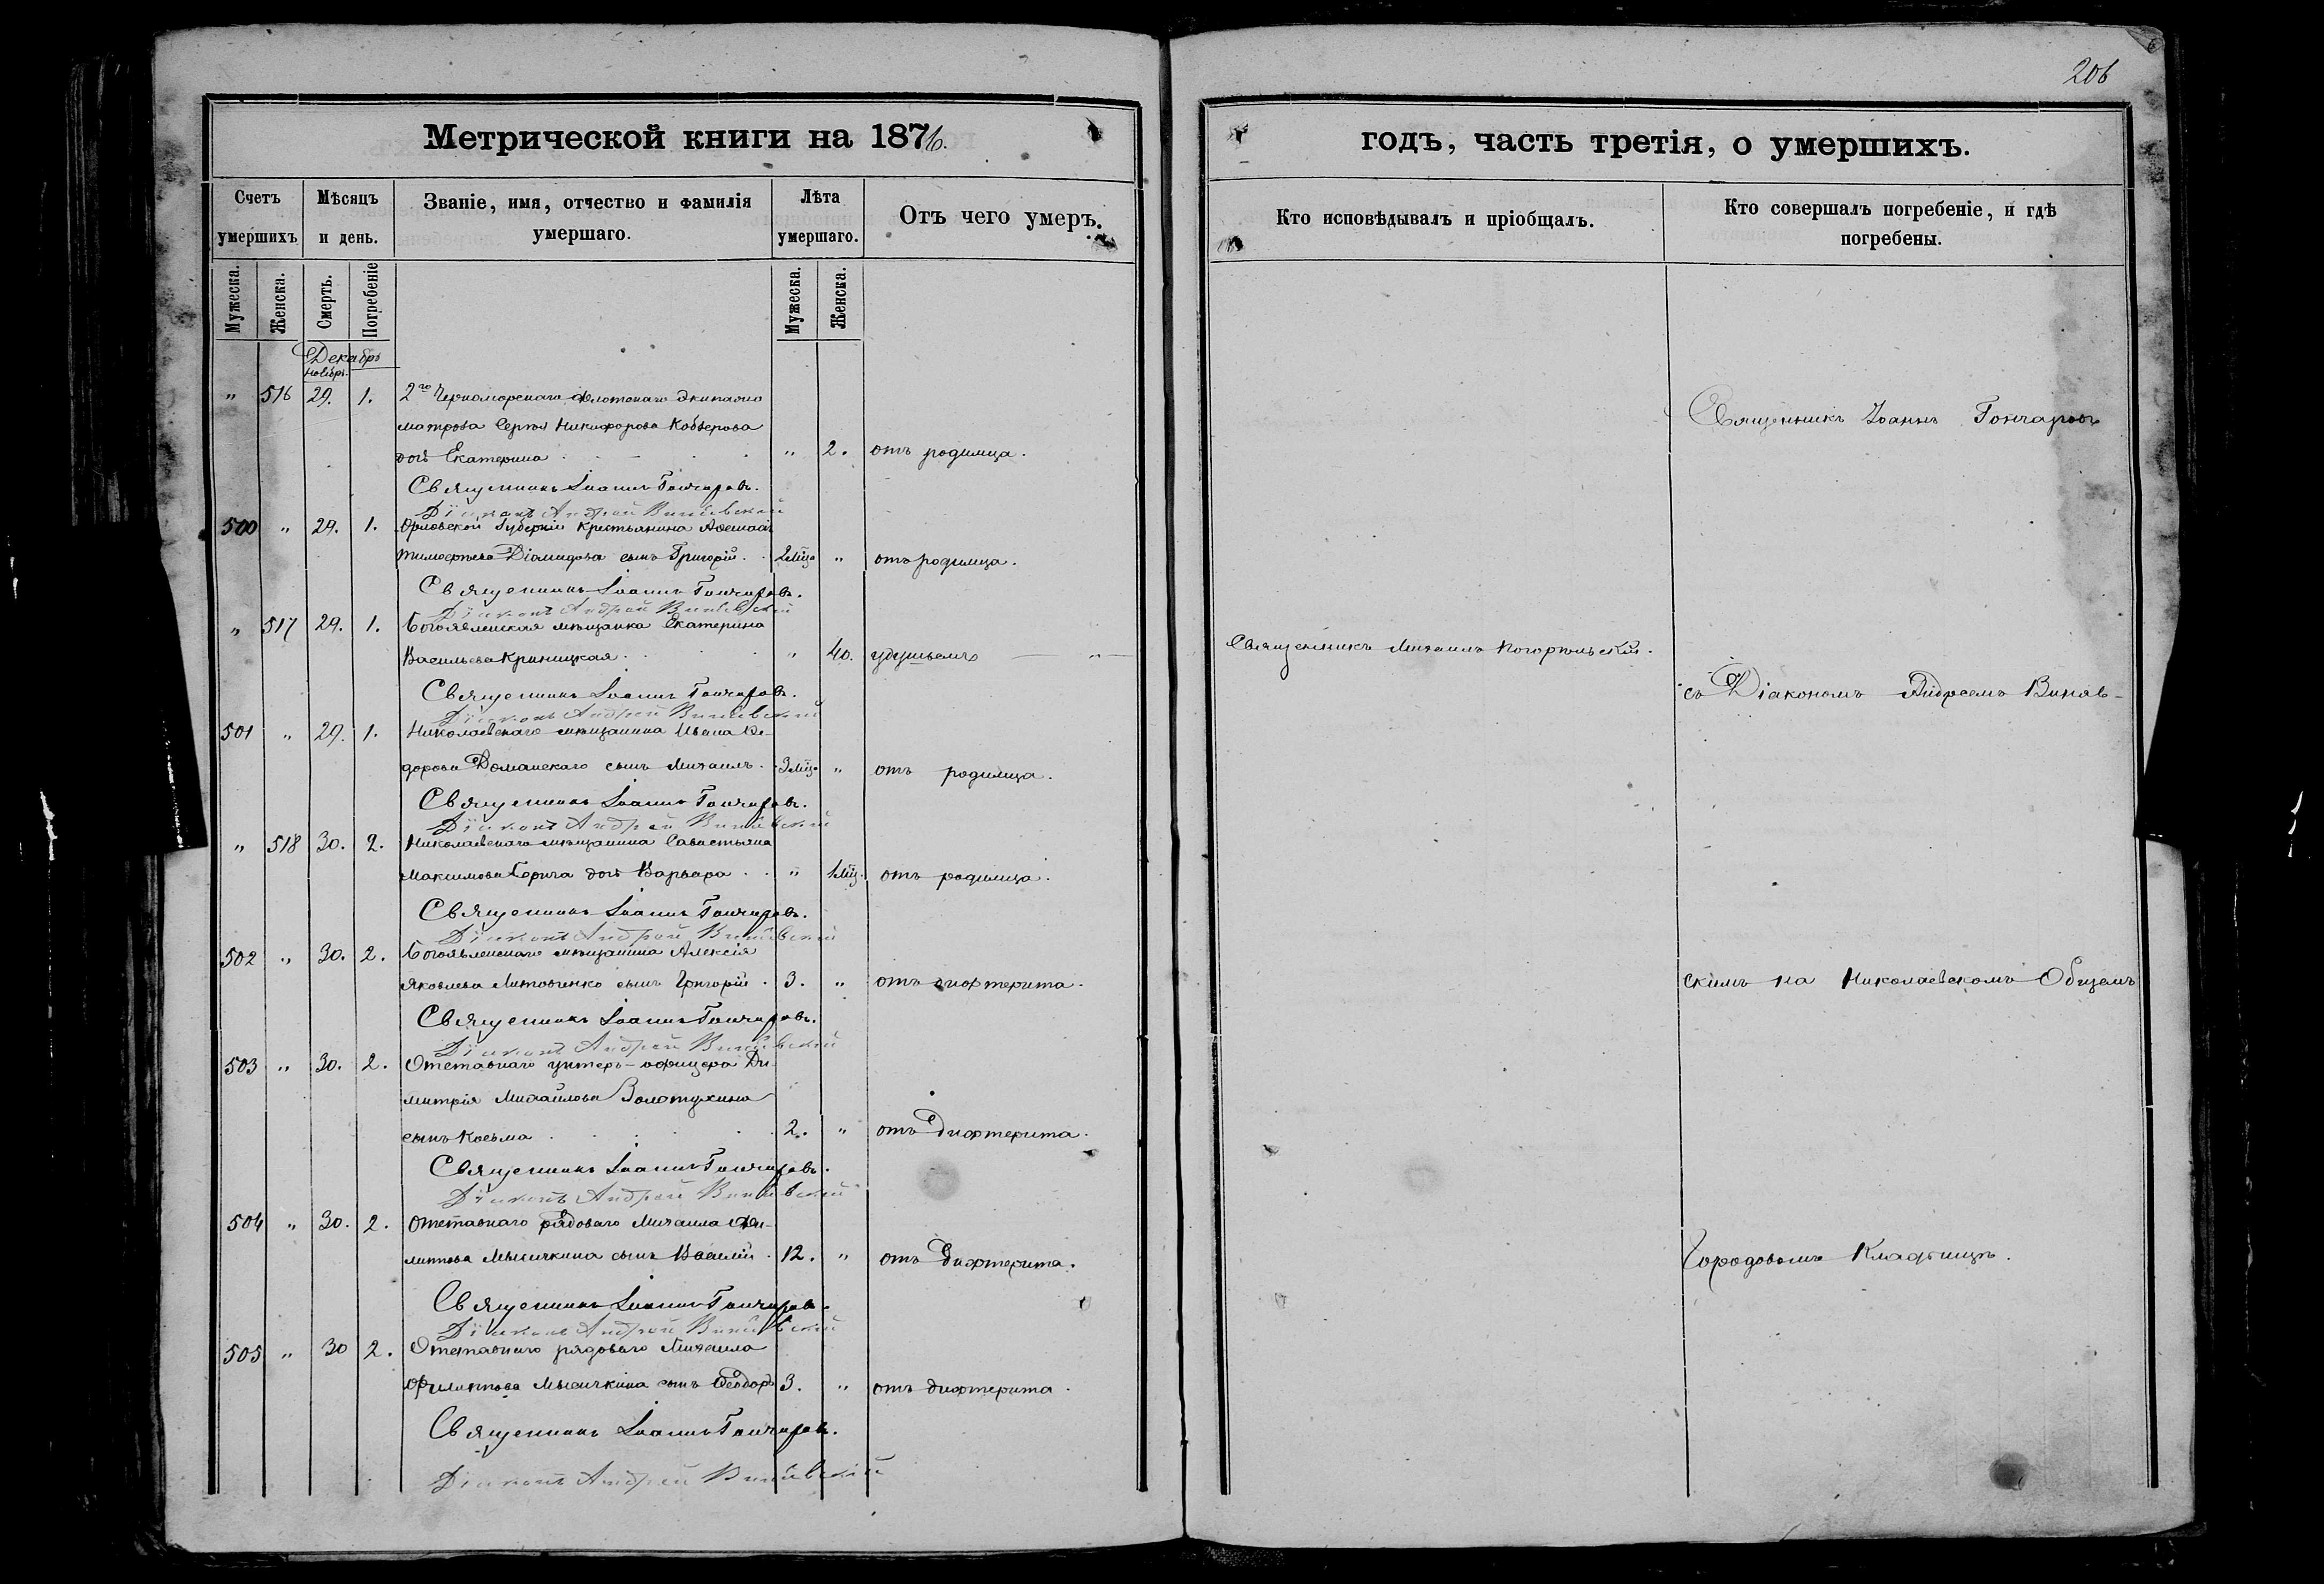 206
Метрической книги на 1876.
годъ, часть третія, о умершихъ.
Счетъ умершихъ
Мѣсяцъ и день.
Званіе, имя, отчество и фамилія умершаго.
Лѣта умершаго.
Отъ чего умеръ.
Кто исповѣдывалъ и пріобщалъ.
Кто совершалъ погребеніе, и гдѣ погребены.
Мужеска.
Женска.
Смерть.
Погребеніе
Мужеска.
Женска.
Декабрь
Ноябрь.
" 516 29. 1. 2го Черноморскаго Флотскаго Экипажа
матроса Сергѣя Никифорова
дочь Екатерина " 2. отъ родимца.
Священникъ Іоаннъ Гончаровъ
Священникъ Іоаннъ Гончаровъ.
Діаконъ Андрей Винявскій
500 " 29. 1. Орловской Губерніи Крестьянина
Тимофеева Діамидова сынъ Григорій. 2 мѣц. " отъ родимца.
Священникъ Іоаннъ Гончаровъ.
Діаконъ Андрей Винявскій
" 517 29. 1. Богоявленская мѣщанка Екатерина
Васильева Криницкая " 40. удушьемъ "
Священникъ Михаилъ
Священникъ Іоаннъ Гончаровъ.
Діаконъ Андрей Винявскій
съ Діакономъ Андреемъ Виняв-
501 " 29. 1. Николаевскаго мѣщанина Ивана Ѳе-
дорова Доманскаго сынъ Михаилъ. 3 мѣц. " отъ родимца.
Священникъ Іоаннъ Гончаровъ.
Діаконъ Андрей Винявскій
" 518 30. 2. Николаевскаго мѣщанина Савастьяна
Максимова дочь Варвара " 1 мѣц. отъ родимца.
Священникъ Іоаннъ Гончаровъ.
Діаконъ Андрей Винявскій
502 " 30. 2. Богоявленскаго мѣщанина Алексія
Яковлева Литовченко сынъ Григорій. 3. " отъ дифтерита.
скимъ на Николаевскомъ Общемъ
Священникъ Іоаннъ Гончаровъ.
Діаконъ Андрей Винявскій
503 " 30. 2. Отставнаго унтеръ-офицера Ди-
митрія Михайлова Золотухина
сынъ Косьма 2. " отъ Дифтерита.
Священникъ Іоаннъ Гончаровъ.
Діаконъ Андрей Винявскій
504 " 30. 2. Отставнаго рядоваго Михаила Фи-
липпова Мысичкина сынъ Василій. 12. " отъ Дифтерита.
Городовомъ Кладбищѣ.
Священникъ Іоаннъ Гончаровъ.
Діаконъ Андрей Винявскій
505 " 30 2. Отставнаго рядоваго Михаила
Филиппова Мысичкина сынъ Ѳеодоръ 3. " отъ дифтерита.
Священникъ Іоаннъ Гончаровъ.
Діаконъ Андрей Винявскій